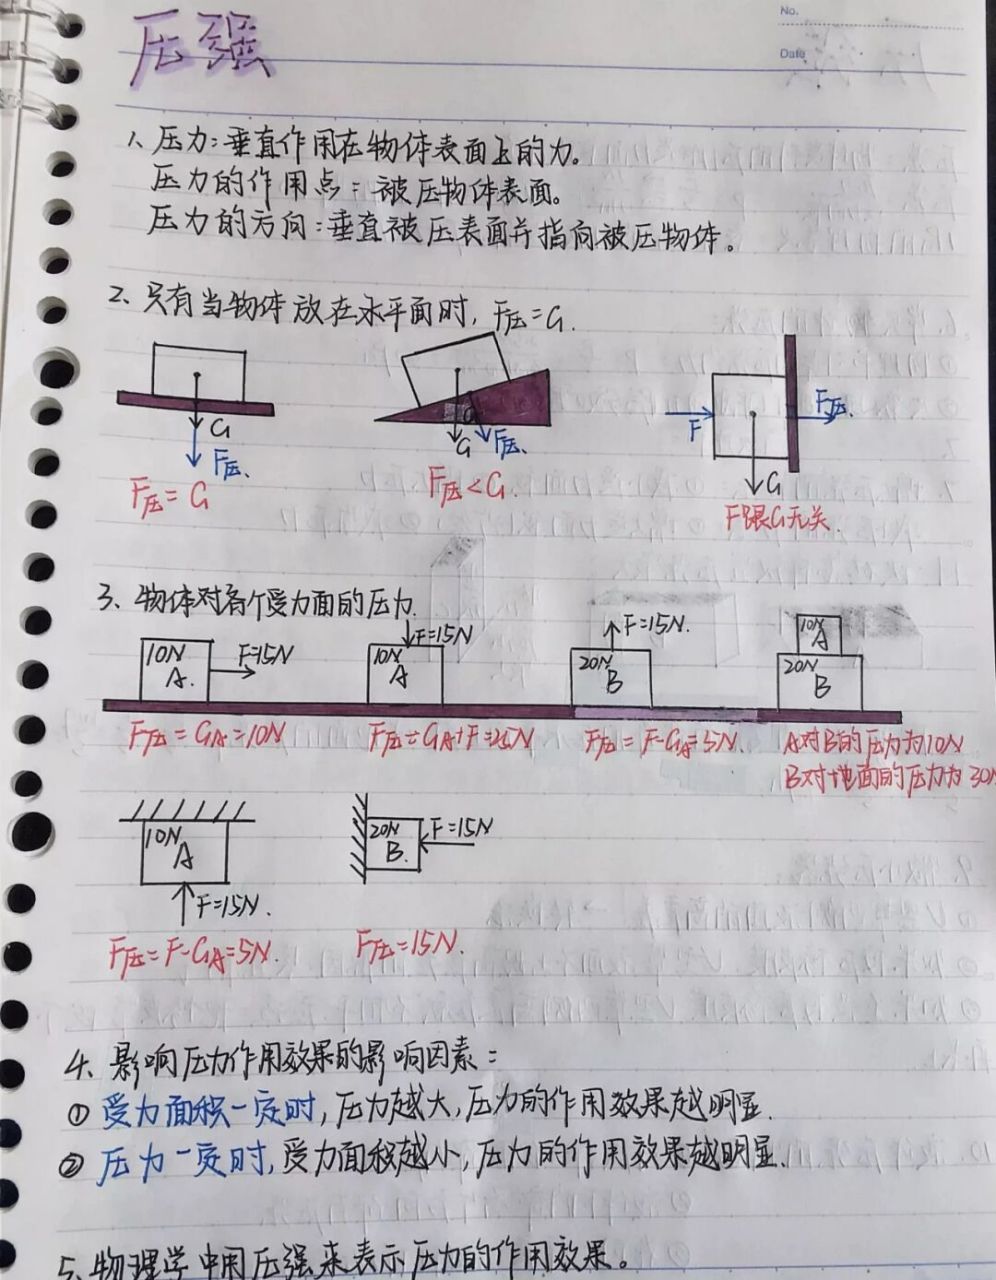 No.
Date
压强
1、压力:垂直作用在物体表面上的力。
压力的作用点:被压物体表面。
压力的方向:垂直被压表面并指向被压物体。
2、只有当物体放在水平面时,F压=G.
G
F压.
F压=G
G
F压.
F压<G.
F
F压.
G
F跟G无关.
3、物体对各个受力面的压力.
10N
A.
F=15N
F压=GA=10N
F=15N
10N
A
F压=GA+F=25N
F=15N.
20N
B
F压=F-GA=5N.
10N
A
20N
B
A对B的压力为10N
B对地面的压力为30N
10N
A
F=15N.
F压=F-GA=5N.
20N
B.
F=15N
F压=15N.
4、影响压力作用效果的影响因素:
① 受力面积一定时,压力越大,压力的作用效果越明显.
② 压力一定时,受力面积越小,压力的作用效果越明显.
5、物理学中用压强来表示压力的作用效果。